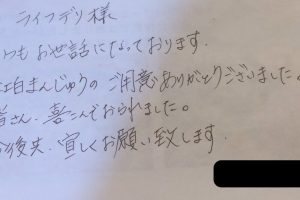 ライフデリ様
いつもお世話になっております。
紅白まんじゅうのご用意ありがとうございました。
皆さん、喜こんでおられました。
今後共、宜しくお願い致します。